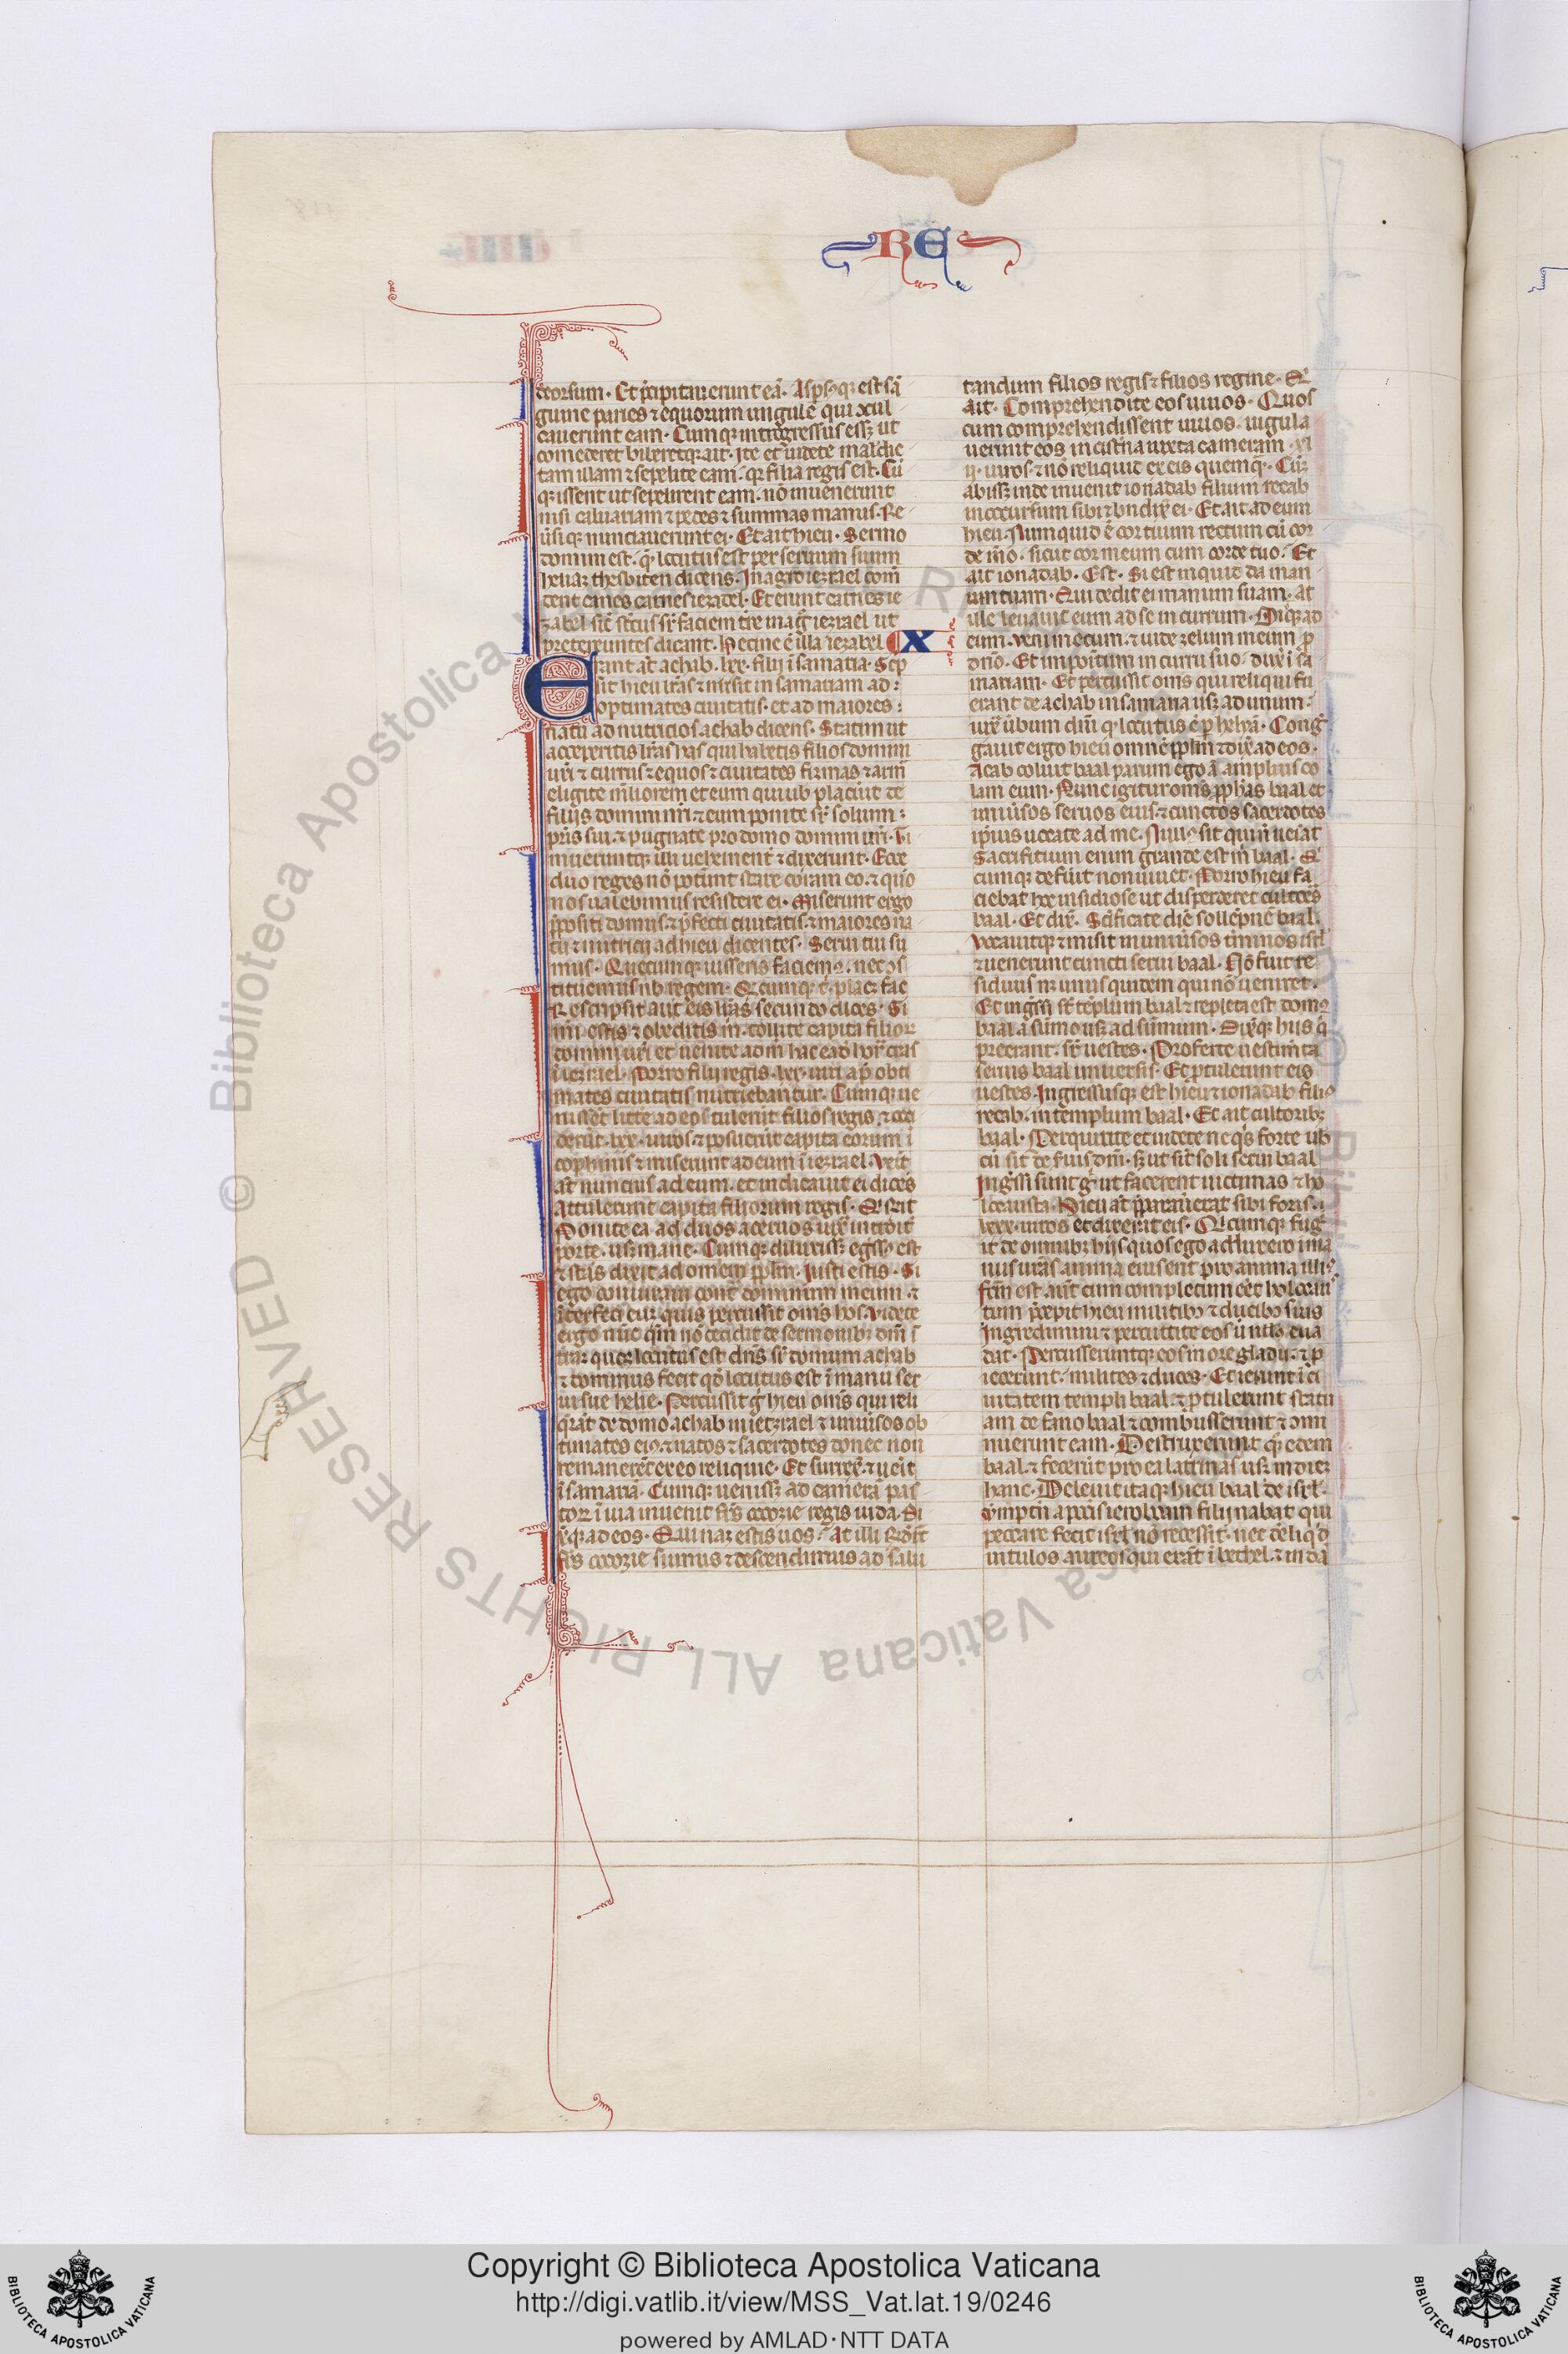 RE
deorsum. Et p̄cipitauerunt eā. Aspsꝰqꝫ est sā
guine paries ⁊ equorum ungule qui ↄcul
cauerunt eam. Cumqꝫ introgressus essꝫ ut
comederet biberetqꝫ ait. Ite et uidete maldic
tam illam ⁊ sepelite eam. qꝛ filia regis est. Cū
qꝫ issent ut sepelirent eam. nō inuenerunt
nisi caluariam ⁊ pedes ⁊ summas manus. Re
ūsiqꝫ nunciauerunt ei. Et ait hieu. Sermo
domini est. q̄ locutus est per seruum suum
heliaꝫ thesbiten dicens. In agro iezrael com̄
dent canes carnes iezabel. Et erunt carnes ie
zabel sic̄ stercus sr̄ faciem tr̄e in agͦ iezrael ut
pretereuntes dicant. Hecine ē illa iezabel X
Erant aūt achab .lxx. filii ī samaria. Scp
sit hieu lr̄as ⁊ misit in samariam ad
optimates ciuitatis. et ad maiores
natu ad nutricios achab dicens. Statim ut
acceperitis lr̄as has qui habetis filios domini
ur̄i ⁊ currus ⁊ equos ⁊ ciuitates firmas ⁊ arm̄
eligite m̄liorem et eum qui uob placūit de
filiis domini ur̄i ⁊ eum ponite sr̄ solium
pr̄is sui. ⁊ pugnate pro domo domini ur̄i. Ti
mueruntqꝫ illi uehement̄ ⁊ dixerunt. Ecce
duo reges nō potūunt stare coram eo. ⁊ quō
nos ualebimus resistere ei. Miserunt ergo
p̄positi domus. ⁊ p̄fecti ciuitatis. ⁊ maiores na
tu ⁊ nutricij ad hieu dicentes. Serui tui su
mus. Quecumqꝫ iusseris faciemꝰ. nec ↄs
tituemus nob regem. Et cumqꝫ t̄. placꝫ fac
Rescripsit aūt eis lr̄as secundo dices. Si
mei estis ⁊ obeditis m̄. tollite capita filioꝝ
domini ur̄i et uenite ad m̄ hac eadē hora cras
ī iezrael. Porro filij regis .lxx. uiri apd̄ opti
mates ciuitatis nutriebantur. Cumqꝫ ue
nissent littē ad eos tulerūt filios regis. ⁊ occi
derūt .lxx. uiros ⁊ posuerūt capita eorum ī
cophinis ⁊ miserunt ad eum ī iezrael. Venit
aūt nuncius ad eum. et indicauit ei dicēs
Attulerunt capita filiorum regis. Et ait
Ponite ea ad duos aceruos iux̄ introitū
porte. usqꝫ mane. Cumqꝫ diluxissꝫ egssꝰ est
⁊ stās dixit ad omnem pplm̄. Iusti estis. Si
ego coniuraui cont̄ dominum meum. ⁊
īterfeci eur̄ quis percussit omīs hos. Videte
ergo nūc qm̄ nō cecidit de sermonibꝫ dn̄i ī
traꝫ quos locutus est dn̄s sr̄ domum achab
⁊ dominus fecit qd̄ locutus est ī manu ser
ui sue helie. Percussit gͦ hieu omīs qui reli
qͥ erāt de domo achab in iezrael ⁊ uniūsos ob
timates eiꝰ. ⁊ natos ⁊ sacerdotes donec non
remanerēt ex eo reliquie. Et surrex̄. ⁊ uenit
ī samaria. Cumqꝫ uenissꝫ ad camerā pas
torꝫ ī uia inuenit frīs ococie regis iuda. Di
x̄qꝫ ad eos. Qui nam estis uos. At illi rn̄dert
frīs ococie sumus ⁊ descendimus ad salu
tandum filios regis ⁊ filios regine. Et
ait. Comprehendite eos uiuos. Quos
cum comprehendissent uiuos. iugula
uerunt eos in cist̄na iuxta cameram .xl
ii. uiros. ⁊ nō reliquit ex eis quemqꝫ. Cūqꝫ
abissꝫ inde inuenit ionadab filium recab
in occursum sibi ⁊ bn̄dix̄ ei. Et ait ad eum
hieu. Numquid ē cor tuum rectum cū cor
de m̄o. sicut cor meum cum corde tuo. Et
ait ionadab. Est. Si est inquit da man
um tuam. Qui dedit ei manum suam. At
ille leuauit eum ad se in currum. Dixitqꝫ ad
eum. Veni mecum. ⁊ uide zelum meum p̄
dn̄o. Et impositum in curru suo. dux̄ ī sa
mariam. Et percussit omīs qui reliqui fu
erant de achab in samaria usqꝫ ad unum.
iux̄ ūbum dn̄i qd̄ locutus ē p̄ helyā. Congͤ
gauit ergo hieu omnē pplm̄ ⁊ dix̄ ad eos.
Acab coluit baal parum ego aūt amplius co
lam eum. Nunc igitur omīs pphās baal et
uniūsos seruos eius. ⁊ cunctos sacerdotes
ip̄ius uocate ad me. Nullꝰ sit qui n̄ ueiat
Sacrificium enim grande est m̄ baal. Et
cumqꝫ defūit non uiuet. Porro hieu fa
ciebat hoc insidiose ut disperderet cultores
baal. Et dix̄. Sc̄ificate diē sollēpnē baal.
Vocauitqꝫ ⁊ misit in uniūsos t̄minos isrl
⁊ uenerunt cuncti serui baal. Nō fuit re
siduus nꝫ unus quidem qui nō ueniret.
Et ingssi sr̄ templum baal ⁊ repleta est domꝰ
baal a sūmo usqꝫ ad sūmum. Dixitqꝫ hiis q̄
preerant. sr̄ uestes. Proferte uestim̄ta
seruis baal uniuersis. Et ptulerunt eis
uestes. Ingressusqꝫ est hieu ⁊ ionadab filiꝰ
recab. in templum baal. Et ait cultoribꝫ
baal. Perquirite et uidete ne qͥs forte uob
cū sit de suis dn̄i. sꝫ ut sit soli serui baal
Ingssi sunt gͦ ut facerent uictimas ⁊ ho
locausta. Hieu aūt p̄parauerat sibi foris
.lxxx. uiros et dixerat eis. Et cumqꝫ fugͤ
it de omnibꝫ hijs quos ego adduxero ī ma
nus ur̄as anima eius erit pro anima illiꝰ
fcm̄ est aūt cum completum eēt holocaus
tum p̄cepit hieu militibꝫ ⁊ ducibꝫ suis
Ingredimini ⁊ percutite eos ut nullꝰ eua
dat. Percusseruntqꝫ eos in ore gladij. ⁊ p
iecerunt. milites ⁊ duces. Et ierunt ī ci
uitatem templi baal. ⁊ ptulerunt statu
am de fano baal ⁊ combusserunt ⁊ ↄmi
nuerunt eam. Destruxerunt qꝫ edem
baal. ⁊ fecerūt pro ea latrinas usqꝫ in dieꝫ
hanc. Deleuit itaqꝫ hieu baal de isrl.
Verumptn̄ a pcc̄is ieroboam filij nabat qui
peccare fecit isrl nō recessit. nec dereliqͥd
uitulos aureos qui erāt ī bethel. ⁊ in dā
Copyright © Biblioteca Apostolica Vaticana
http://digi.vatlib.it/view/MSS_Vat.lat.19/0246
powered by AMLAD·NTT DATA
BIBLIOTECA APOSTOLICA VATICANA
BIBLIOTECA APOSTOLICA VATICANA
© Biblioteca Apostolica Vaticana ALL RIGHTS RESERVED